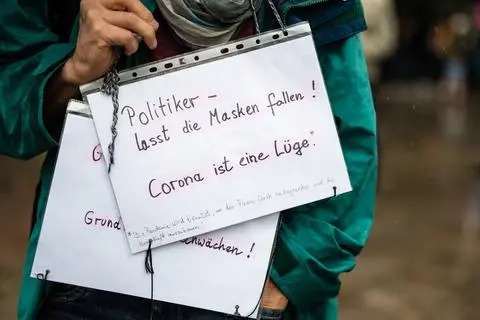 Politiker –
lasst die Masken fallen!
Corona ist eine Lüge*!
* Die Pandemie wird benutzt, um das
G
Grund
chwächen!